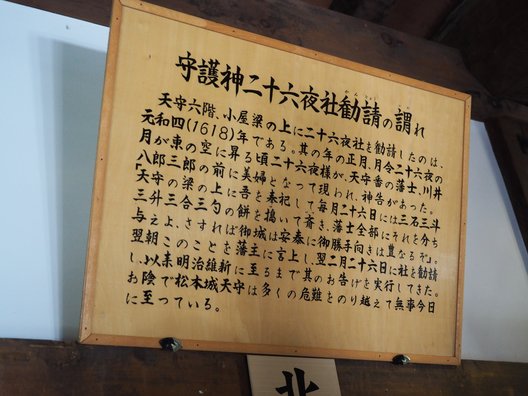 守護神二十六夜社勧請の謂れ
天守六階、小屋梁の上に二十六夜社を勧請したのは、
元和四(1618)年である。其の年の正月、月令二十六夜の
月が東の空に昇る頃二十六夜様が、天守番の藩士、川井
八郎三郎の前に美婦となって現われ、神告があった。
「天守の梁の上に吾を奉祀して毎月二十六日には三石三斗
三升三合三勺の餅を搗いて斎き、藩士全部にそれを分ち
与えよ、さすれば御城は安泰に御勝手向きは豊なるぞ」。
翌朝このことを藩主に言上し、翌二月二十六日に社を勧請
し、以来明治維新に至るまで其のお告げを実行してきた。
お陰で松本城天守は多くの危難とのり越えて無事今日
に至っている。
北